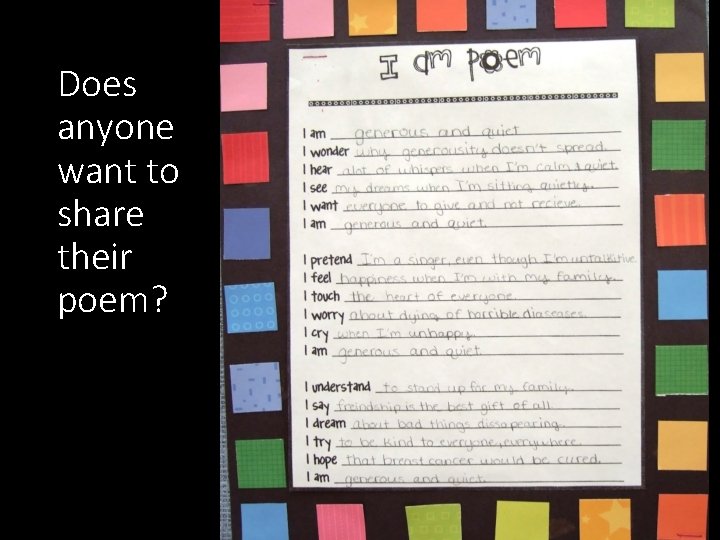 Does
anyone
want to
share
their
poem?
I am poem
I am generous and quiet
I wonder why generousity doesn't spread.
I hear alot of whispers when I'm calm & quiet.
I see my dreams when I'm sitting quietly.
I want everyone to give and not recieve.
I am generous and quiet.
I pretend I'm a singer, even though I'm untalkitive.
I feel happiness when I'm with my family.
I touch the heart of everyone.
I worry about dying of horrible diaseases.
I cry when I'm unhappy.
I am generous and quiet
I understand to stand up for my family.
I say freindship is the best gift of all.
I dream about bad things dissapearing.
I try to be kind to everyone, everywhere.
I hope that breast cancer would be cured.
I am generous and quiet.